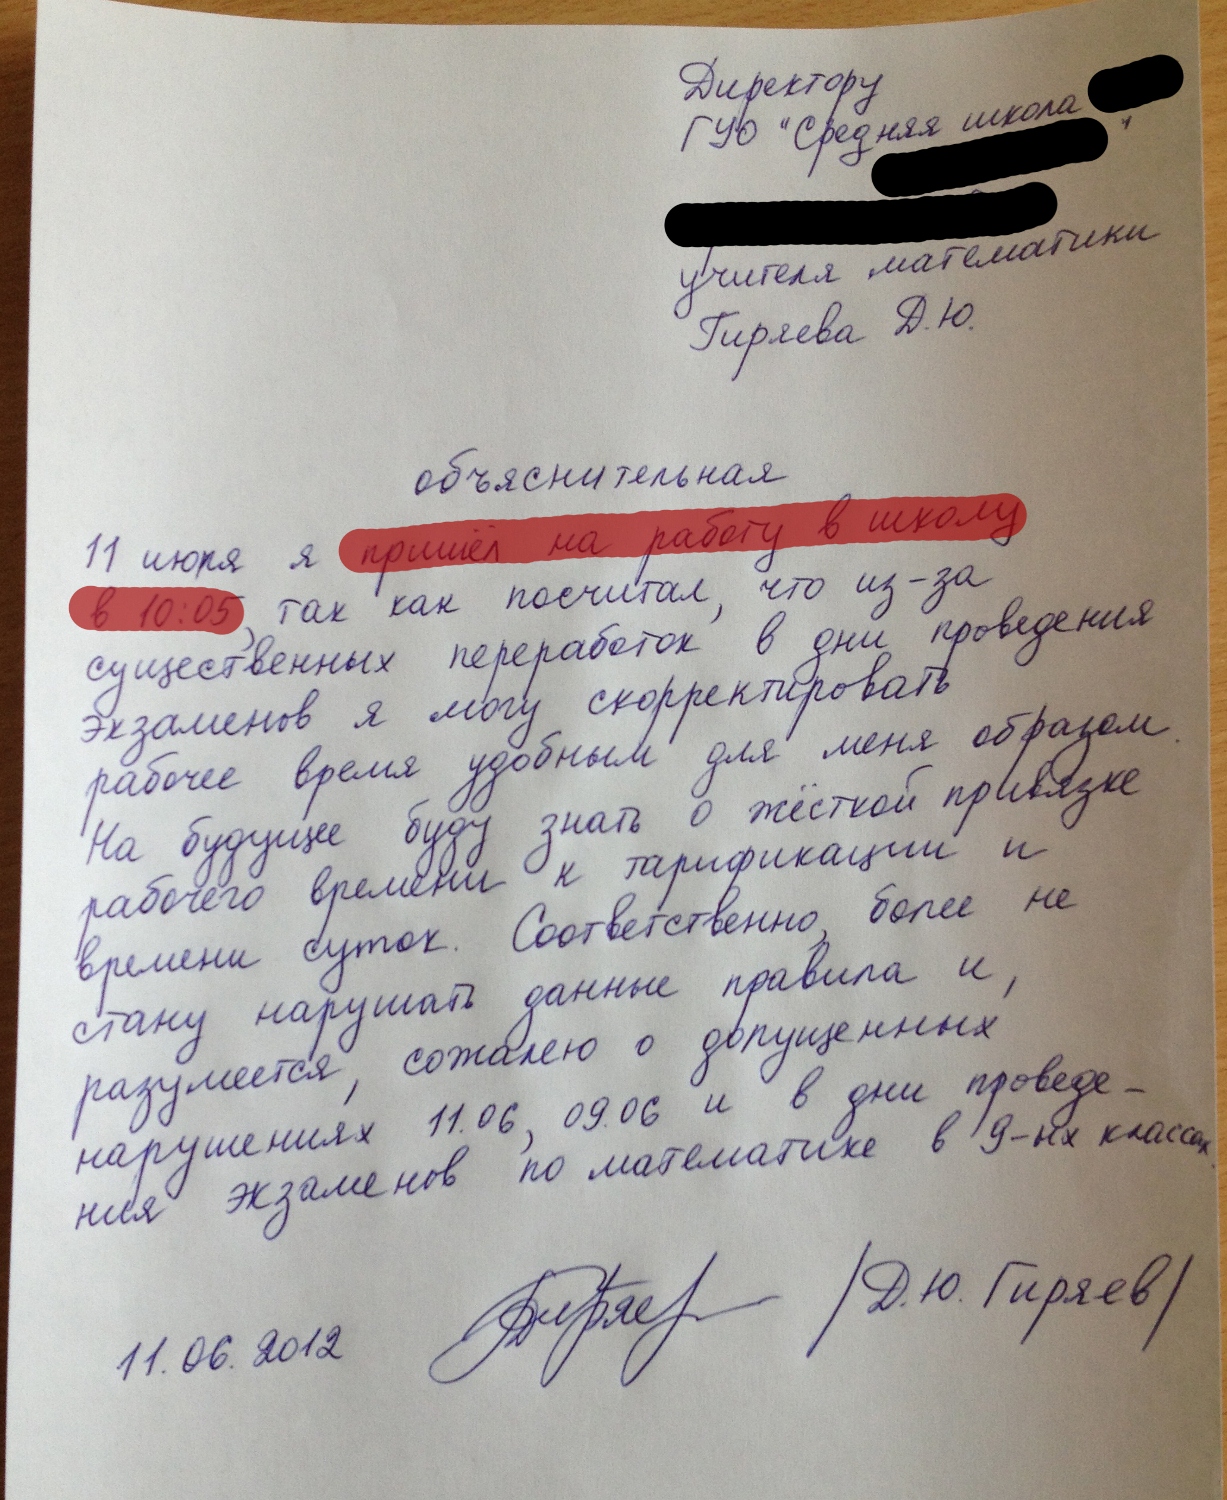 Директору
ГУО "Средняя школа
"
учителя математики
Гиряева Д.Ю.
объяснительная
11 июня я пришёл на работу в школу
в 10:05, так как посчитал, что из-за
существенных переработок в дни проведения
экзаменов я могу скорректировать
рабочее время удобным для меня образом.
На будущее буду знать о жёсткой привязке
рабочего времени к тарификации и
времени суток. Соответственно, более не
стану нарушать данные правила и,
разумеется, сожалею о допущенных
нарушениях 11.06, 09.06 и в дни проведе-
ния экзаменов по математике в 9-ых классах.
11.06.2012 Гиряев /Д.Ю. Гиряев/